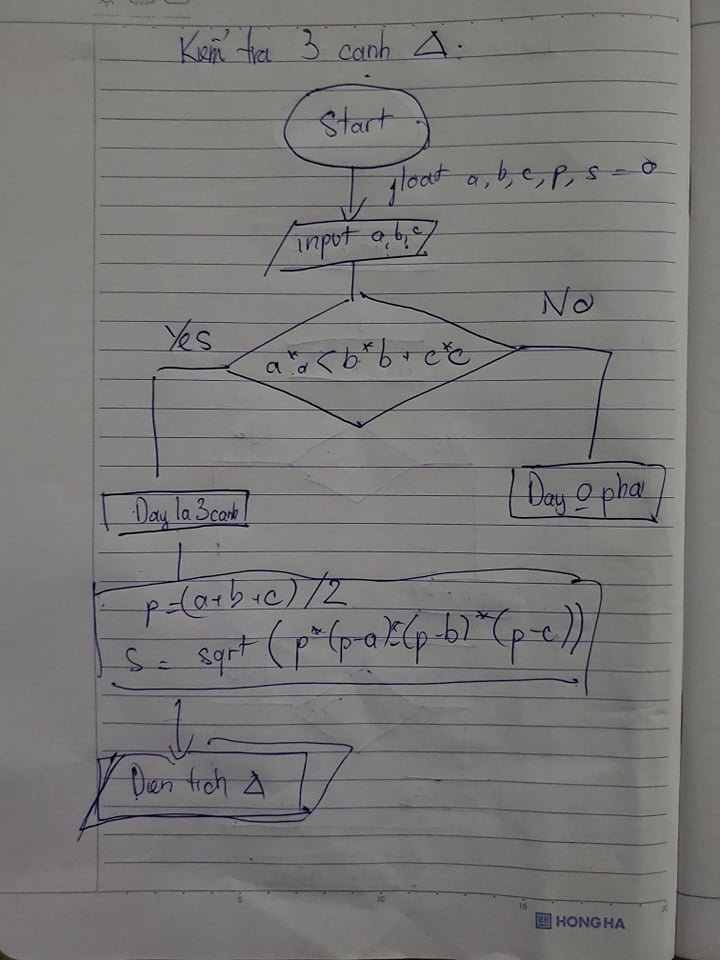 Kiểm tra 3 canh Δ.
Start
float a, b, c, p, s = 0
input a, b, c
Yes
No
a*a < b*b + c*c
Day la 3 canh
Day 0 phai
p = (a + b + c) / 2
s = sqrt (p*(p-a)*(p-b)*(p-c))
Dien tich Δ
5
10
15
20
HONG HA